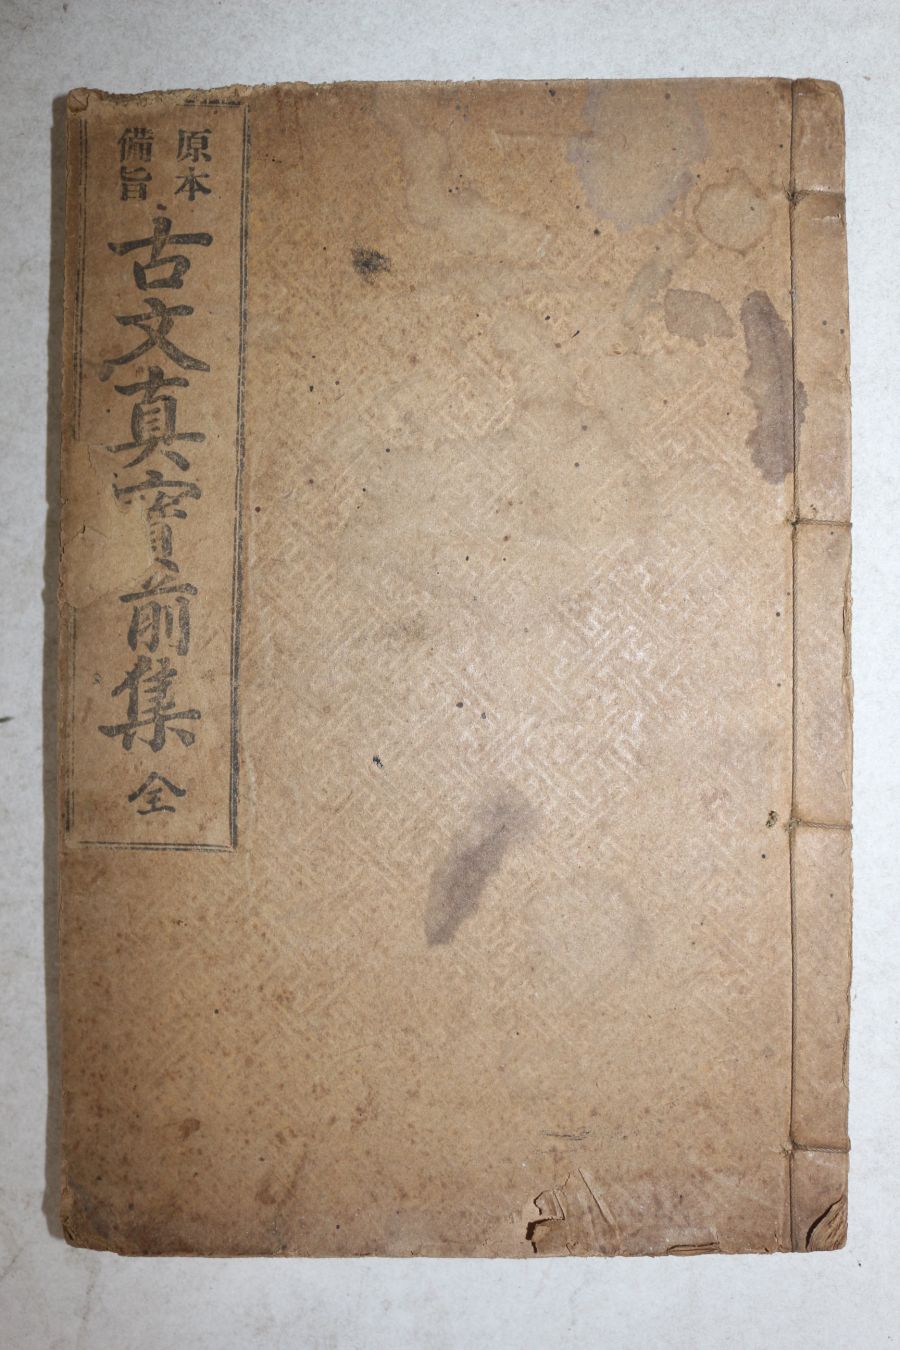 原本
備旨
古文真寶前集 全